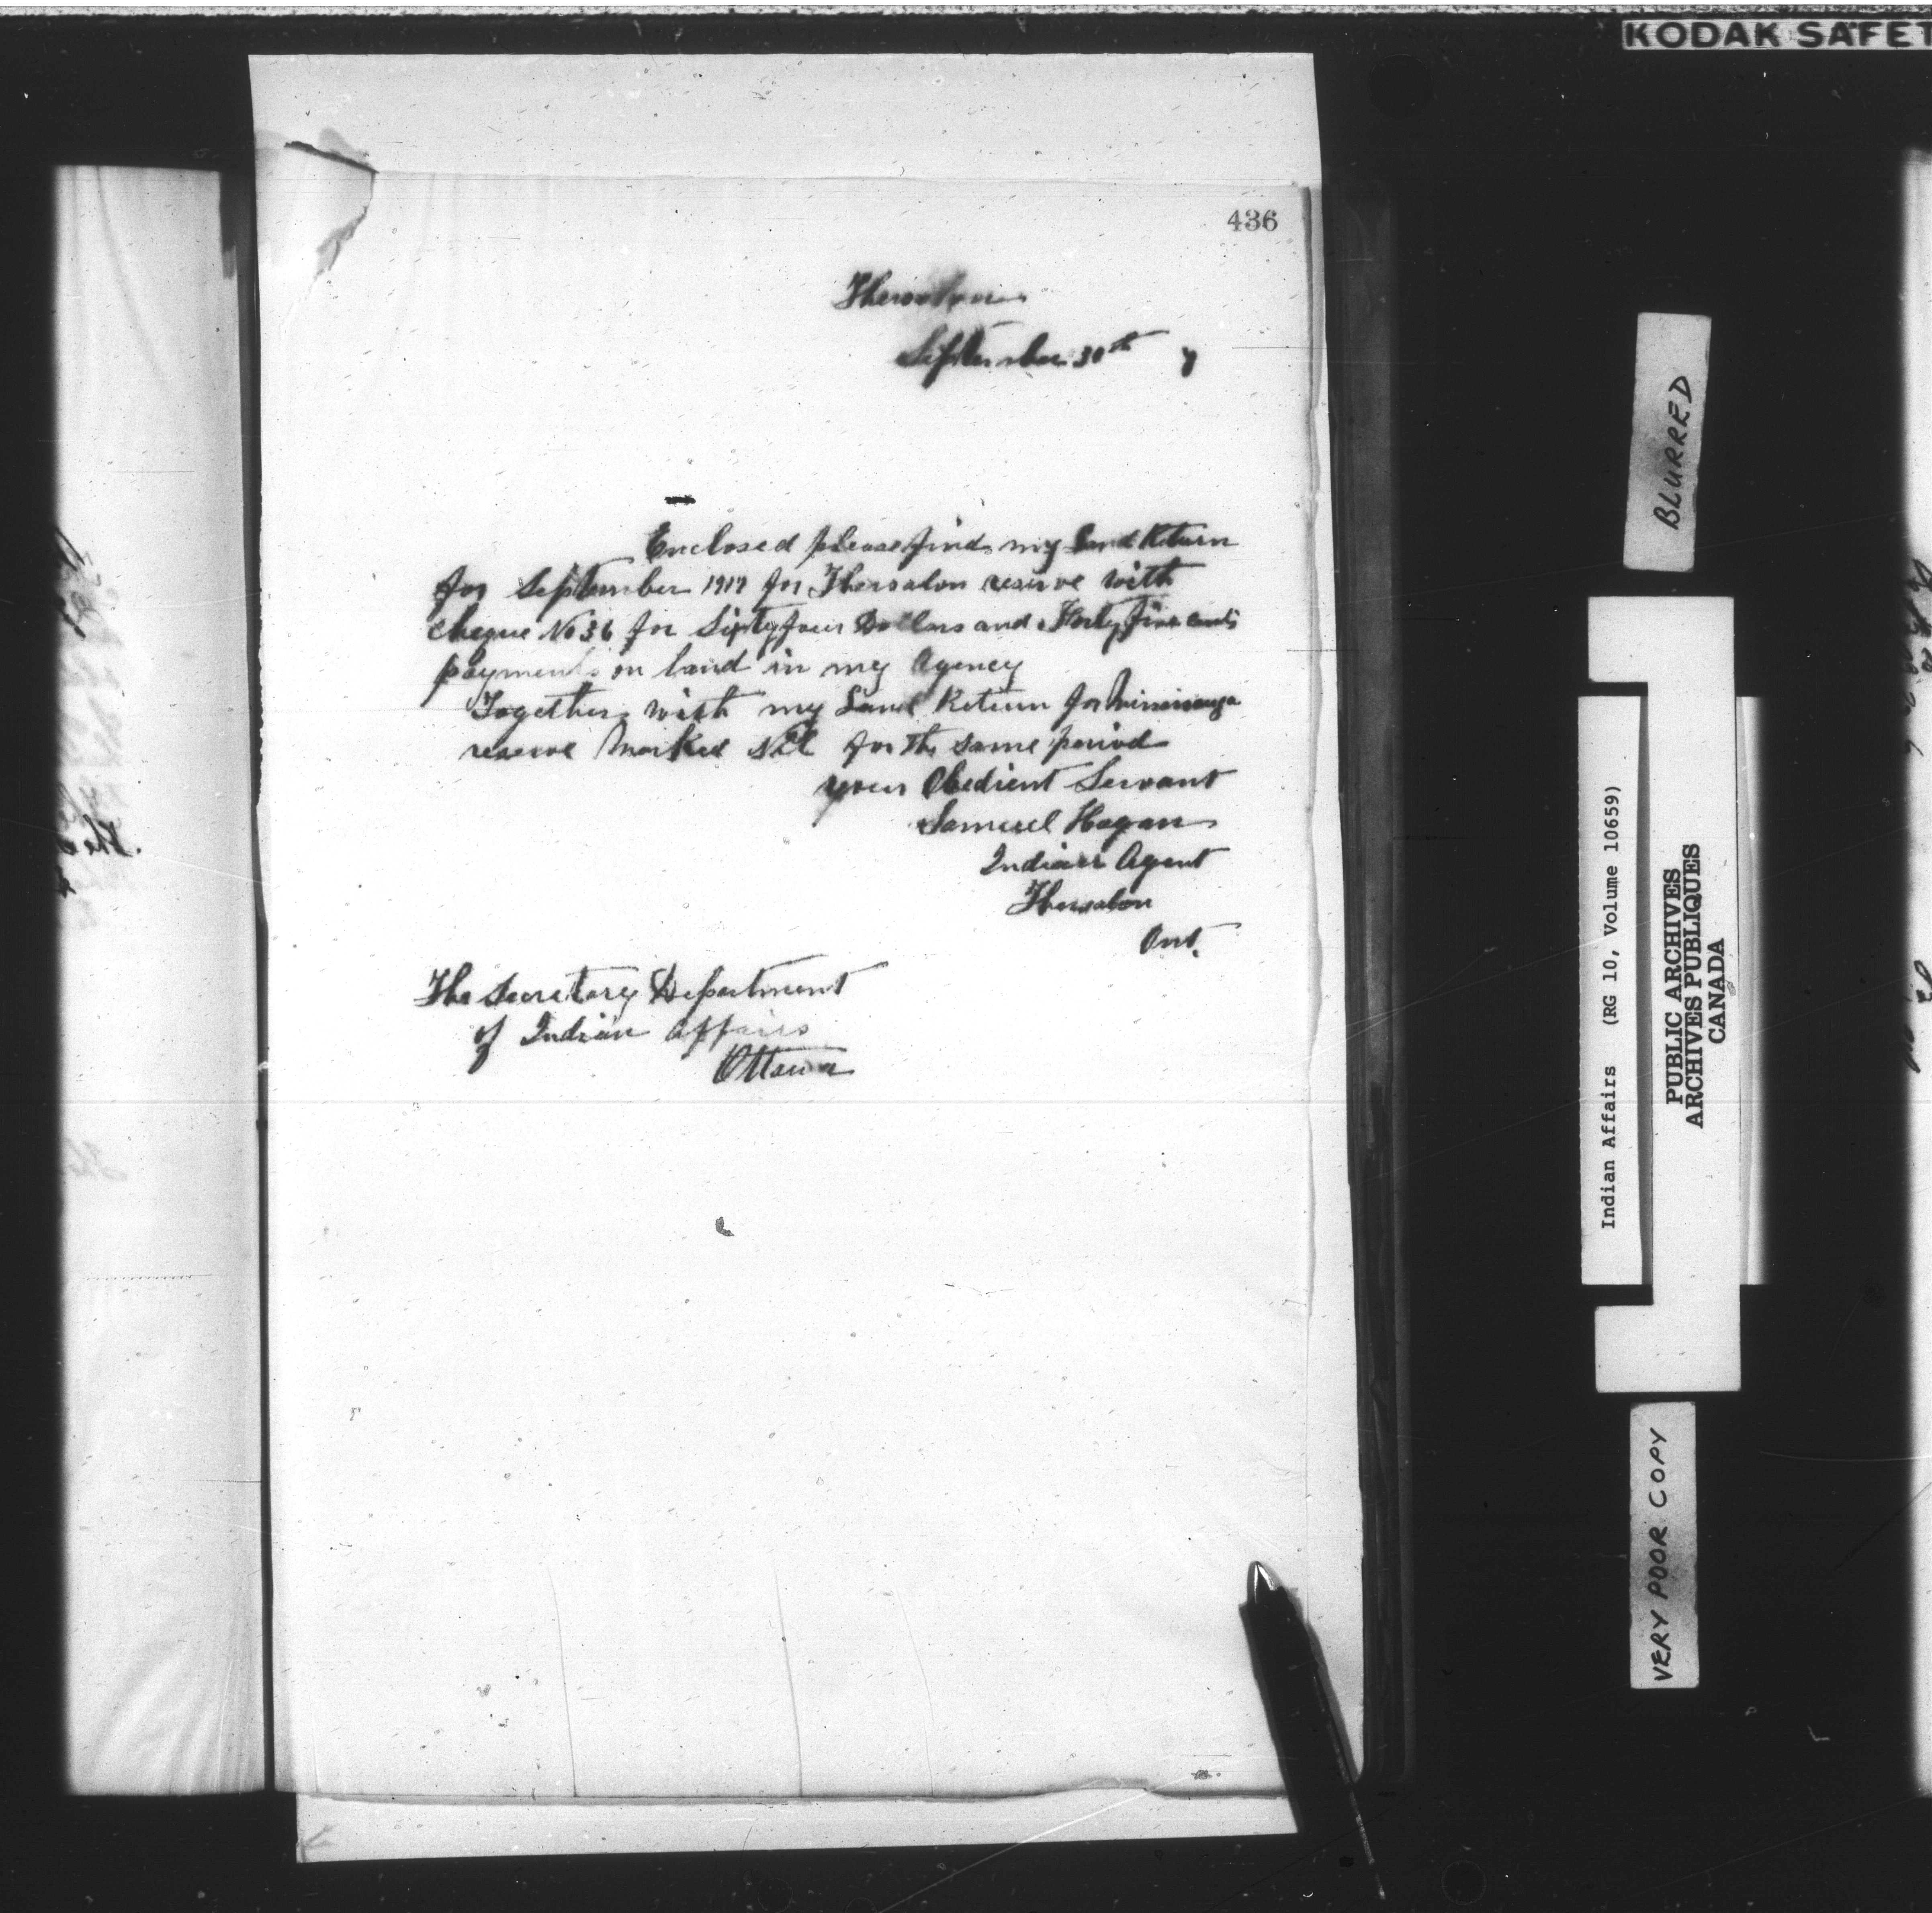 KODAK SAFET
436
Thessalon
September 30th
Enclosed please find my Land Return
for September 1917 for Thessalon reserve with
cheque No 36 for Sixty four Dollars and Forty five cents
payments on land in my Agency
Together with my Land Return for Mississauga
reserve Marked Nil for the same period
your Obedient Servant
Samuel Hagan
Indian Agent
Thessalon
Ont.
The Secretary Department
of Indian Affairs
Ottawa
BLURRED
Indian Affairs (RG 10, Volume 10659)
PUBLIC ARCHIVES
ARCHIVES PUBLIQUES
CANADA
VERY POOR COPY